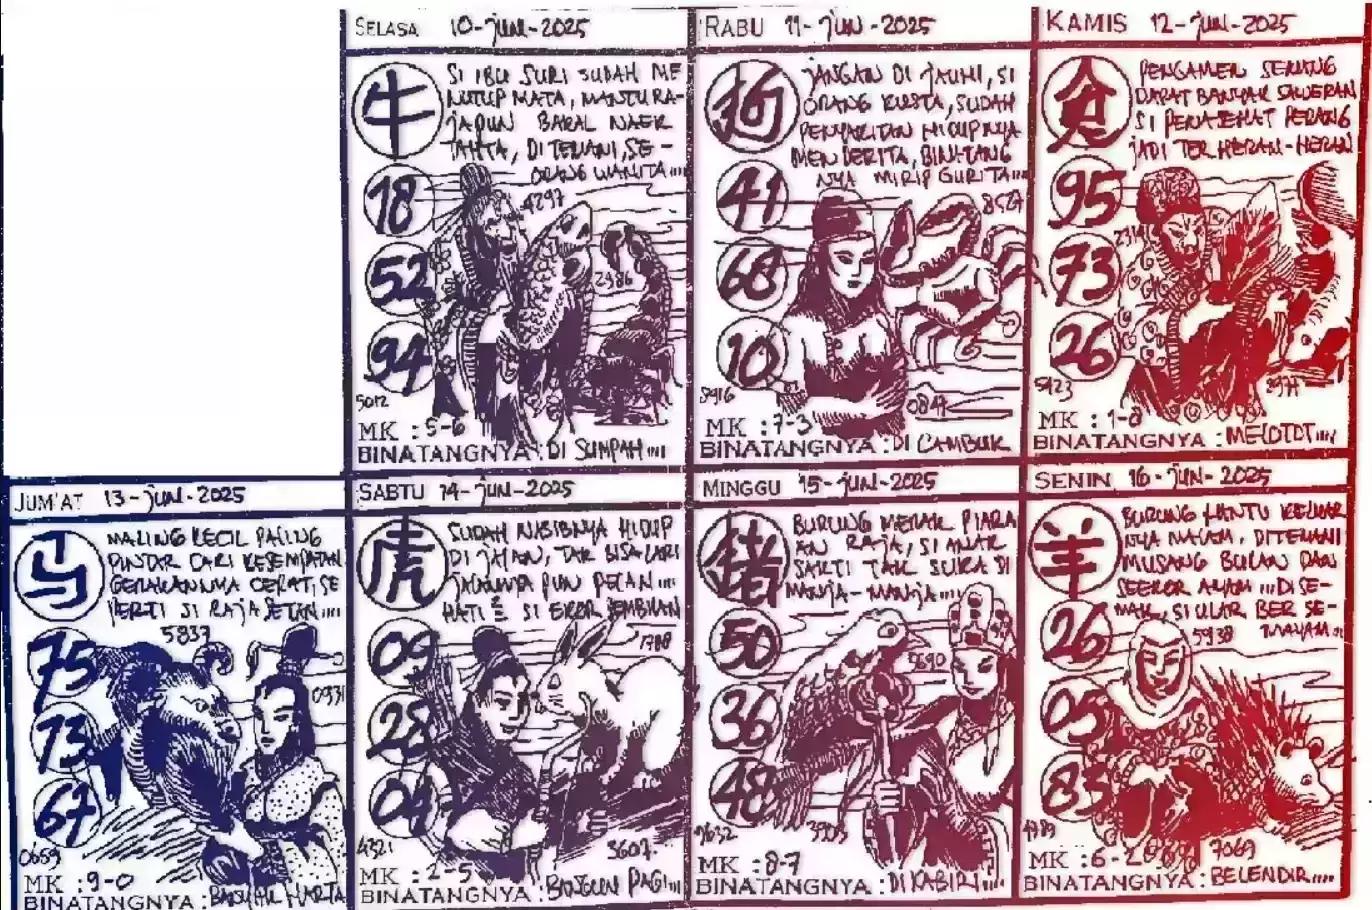 SELASA 10-JUN-2025
牛
SI IBU SURI SUDAH ME
NUTUP MATA, MANTU RA-
JAPUN BAKAL NAEK
TAHTA, DITEMANI, SE-
ORANG WANITA....
18
4297
52
2386
94
5012
MK : 5-6
BINATANGNYA : DI SUMPAH....
RABU 11-JUN-2025
狗
JANGAN DI JAUHI, SI
ORANG KUSTA, SUDAH
PENYAKITAN HIDUPNYA
MENDERITA, BINATANG
NYA MIRIP GURITA....
41
8527
68
10
3916
0847
MK : 7-3
BINATANGNYA : DI CAMBUK
KAMIS 12-JUN-2025
PENGAMEN SENANG
DAPAT BANYAK SAWERAN
SI PENASEHAT PERANG
JADI TERHERAN-HERAN
95
73
26
5423
MK : 1-8
BINATANGNYA : MELOTOT....
JUM'AT 13-JUN-2025
MALING KECIL PALING
PINTAR CARI KESEMPATAN
GERAKANNYA CEPAT, SE
PERTI SI RAJA SETAN....
5837
75
0931
73
67
0659
MK : 9-0
BINATANGNYA : BANYAK HARTA
SABTU 14-JUN-2025
虎
SUDAH NASIBNYA HIDUP
DI JALAN, TAK BISA LARI
JALANNYA PUN PELAN....
HATI² SI EKOR SEMBILAN
09
1788
28
04
4321
3607
MK : 2-5
BINATANGNYA : BANGUN PAGI....
MINGGU 15-JUN-2025
猪
BURUNG MERAK PIARA
AN RAJA, SI ANAK
SAKTI TAK SUKA DI
MANJA-MANJA....
50
5690
36
48
9632
3909
MK : 8-7
BINATANGNYA : DIKABIRI....
SENIN 16-JUN-2025
羊
BURUNG HANTU KELUAR
NYA MALAM, DITEMANI
MUSANG BULAN DAN
SEEKOR AYAM...DI SE-
MAK, SI ULAR BERSE-
MAYAM..
26
5938
05
83
4989
7069
MK : 6-2
BINATANGNYA : BELENDIR....